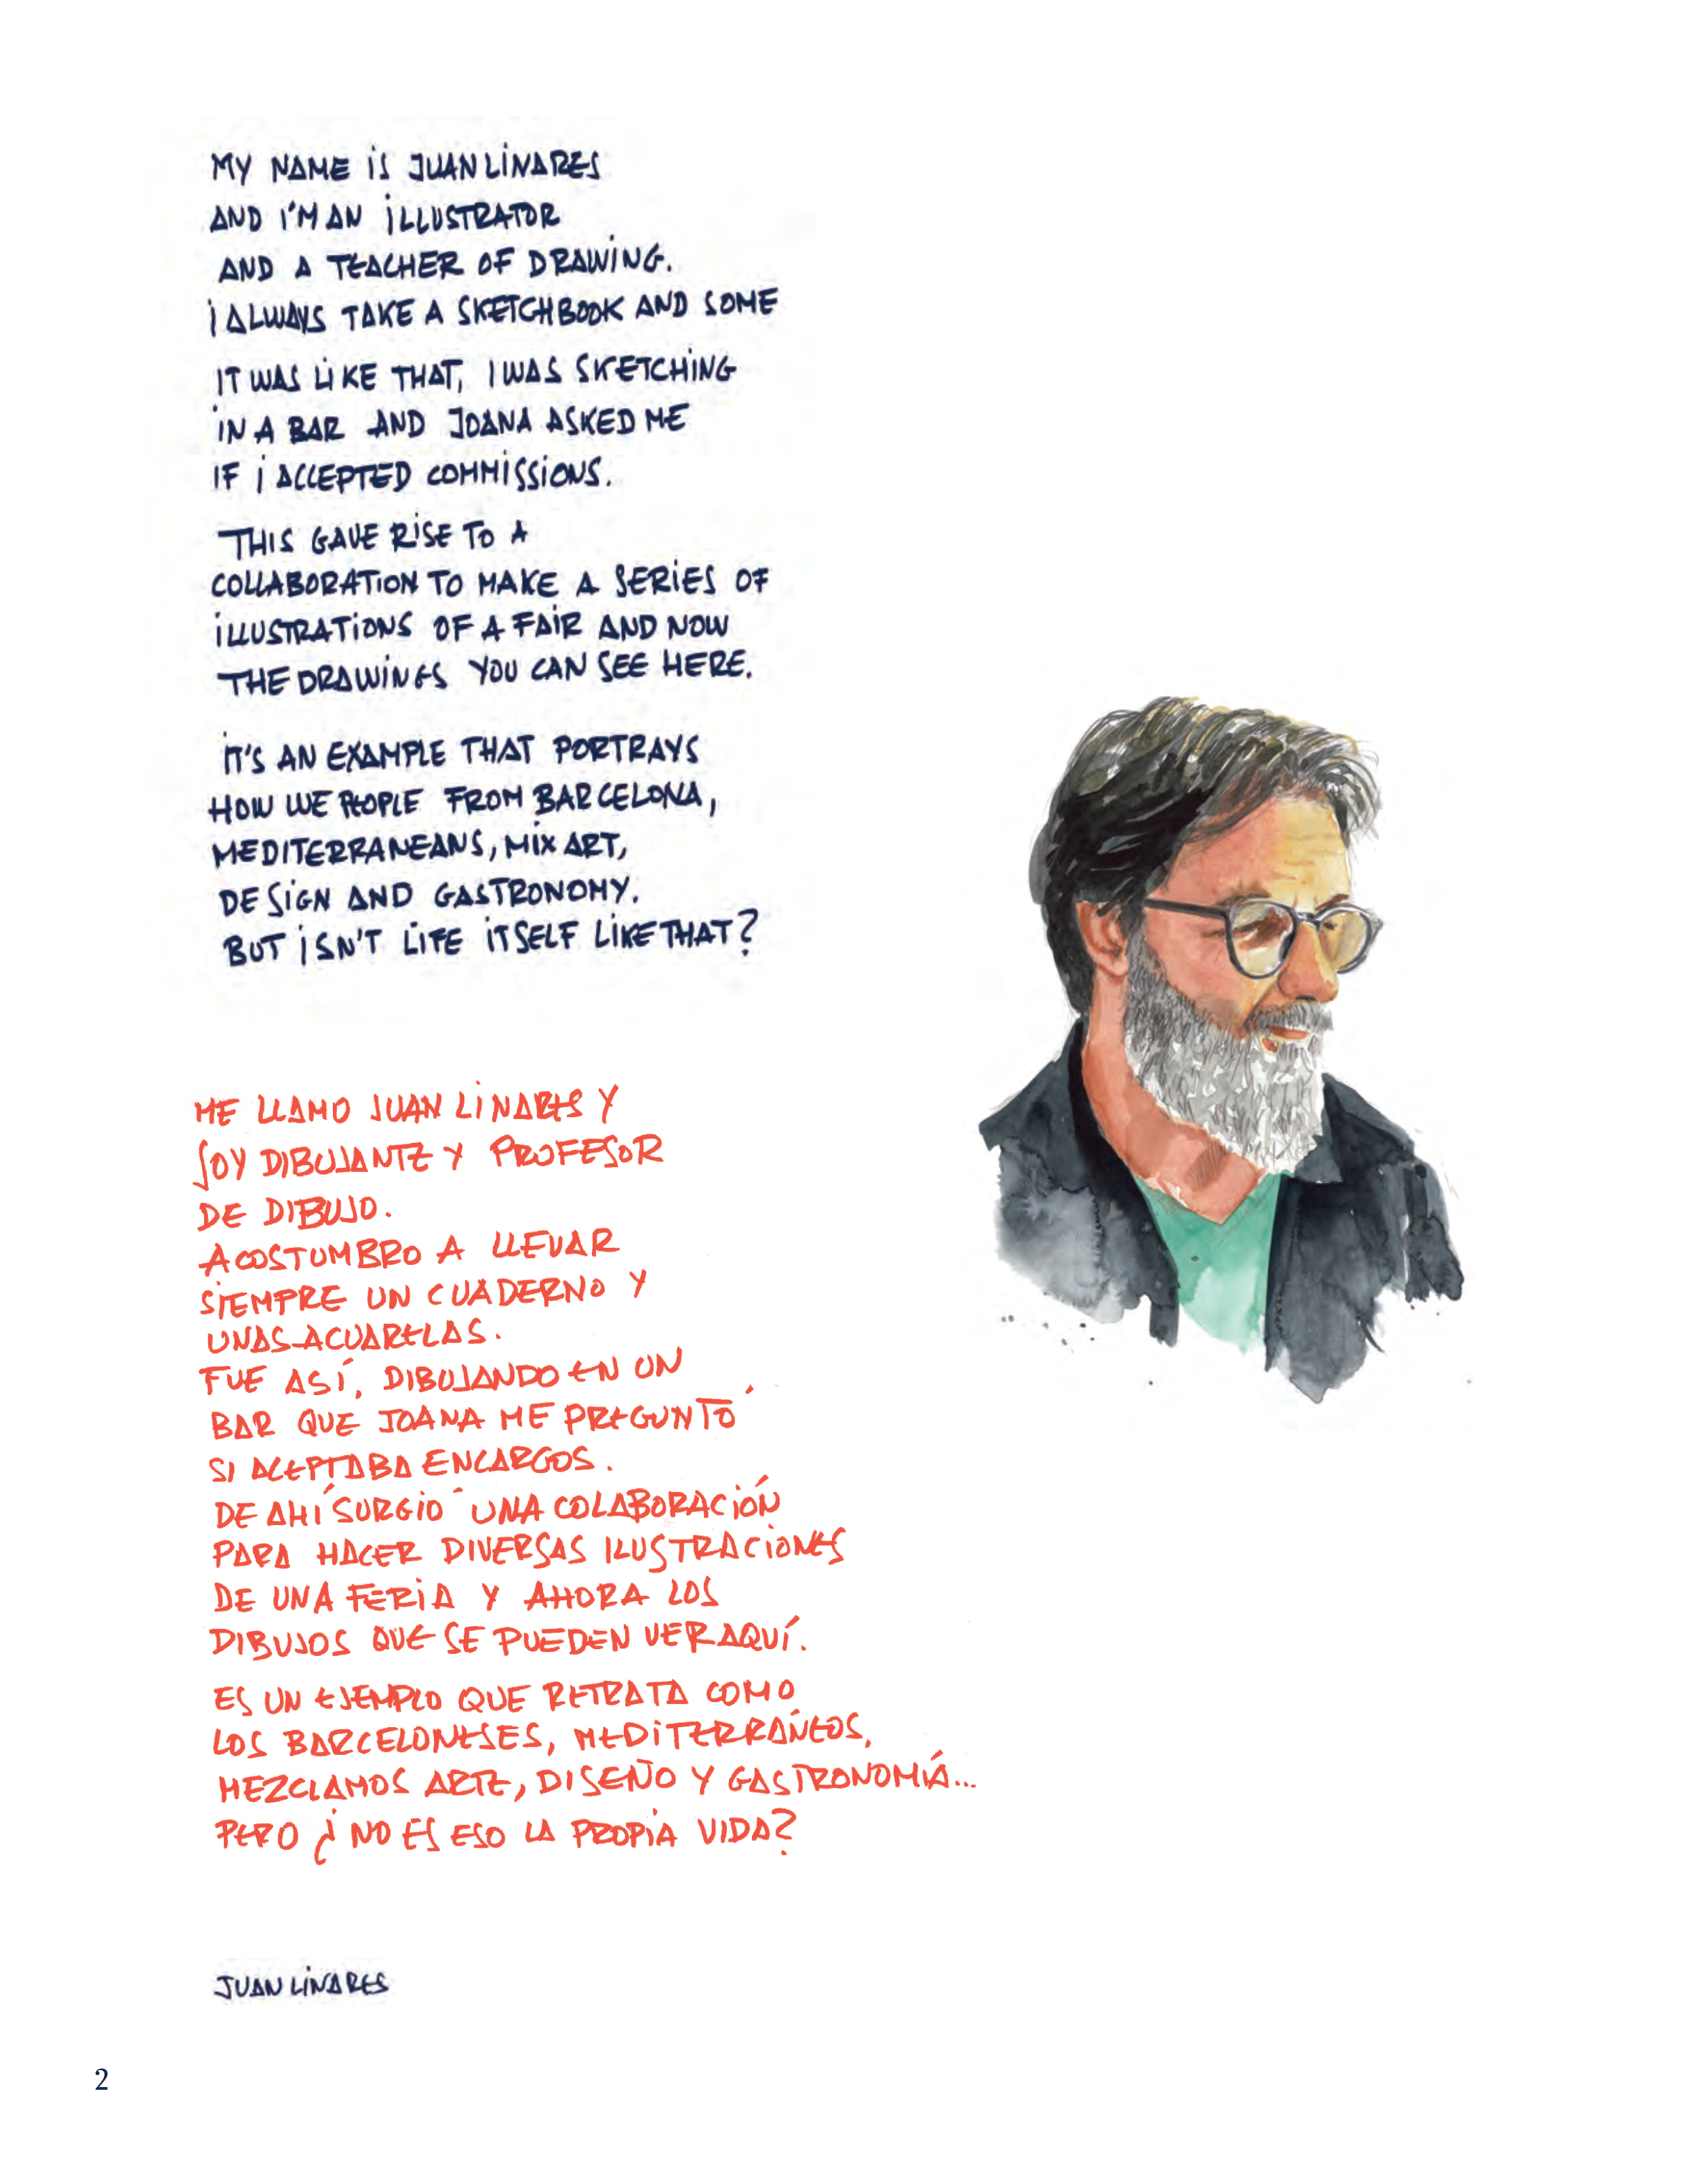 MY NAME IS JUAN LINARES
AND I'M AN ILLUSTRATOR
AND A TEACHER OF DRAWING.
I ALWAYS TAKE A SKETCHBOOK AND SOME
IT WAS LIKE THAT, I WAS SKETCHING
IN A BAR AND JOANA ASKED ME
IF I ACCEPTED COMMISSIONS.
THIS GAVE RISE TO A
COLLABORATION TO MAKE A SERIES OF
ILLUSTRATIONS OF A FAIR AND NOW
THE DRAWINGS YOU CAN SEE HERE.
IT'S AN EXAMPLE THAT PORTRAYS
HOW WE PEOPLE FROM BARCELONA,
MEDITERRANEANS, MIX ART,
DESIGN AND GASTRONOMY.
BUT ISN'T LIFE ITSELF LIKE THAT?
ME LLAMO JUAN LINARES Y
SOY DIBUJANTE Y PROFESOR
DE DIBUJO.
ACOSTUMBRO A LLEVAR
SIEMPRE UN CUADERNO Y
UNAS ACUARELAS.
FUE ASÍ, DIBUJANDO EN UN
BAR QUE JOANA ME PREGUNTÓ
SI ACEPTABA ENCARGOS.
DE AHÍ SURGIÓ UNA COLABORACIÓN
PARA HACER DIVERSAS ILUSTRACIONES
DE UNA FERIA Y AHORA LOS
DIBUJOS QUE SE PUEDEN VER AQUÍ.
ES UN EJEMPLO QUE RETRATA COMO
LOS BARCELONESES, MEDITERRÁNEOS,
MEZCLAMOS ARTE, DISEÑO Y GASTRONOMÍA...
PERO ¿NO ES ESO LA PROPIA VIDA?
JUAN LINARES
2